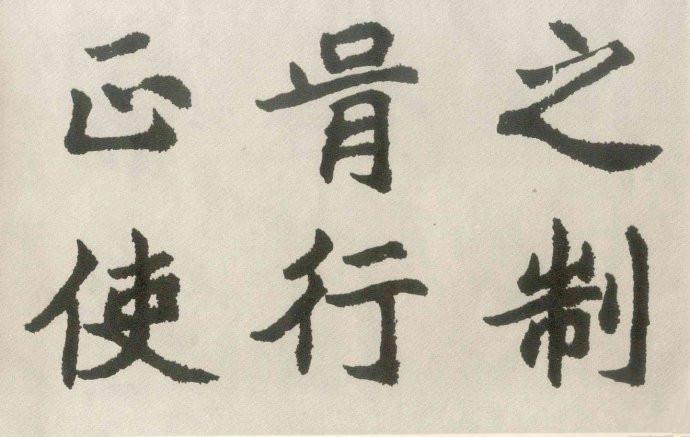 之制
骨行
正使